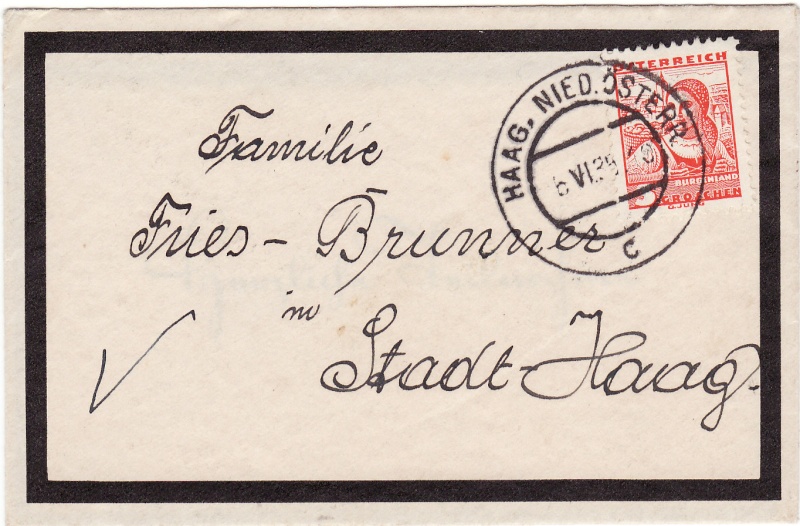 ÖSTERREICH
HAAG, NIED. ÖSTERR.
6 VI.35
BURGENLAND
GROSCHEN
2
Familie
Fries - Brunner
in
Stadt-Haag.